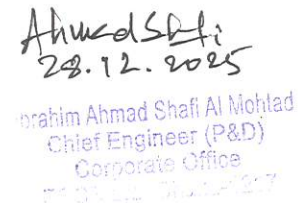 Ahmad Shafi
28.12.2025
brahim Ahmad Shafi Al Mohtad
Chief Engineer (P&D)
Corporate Office